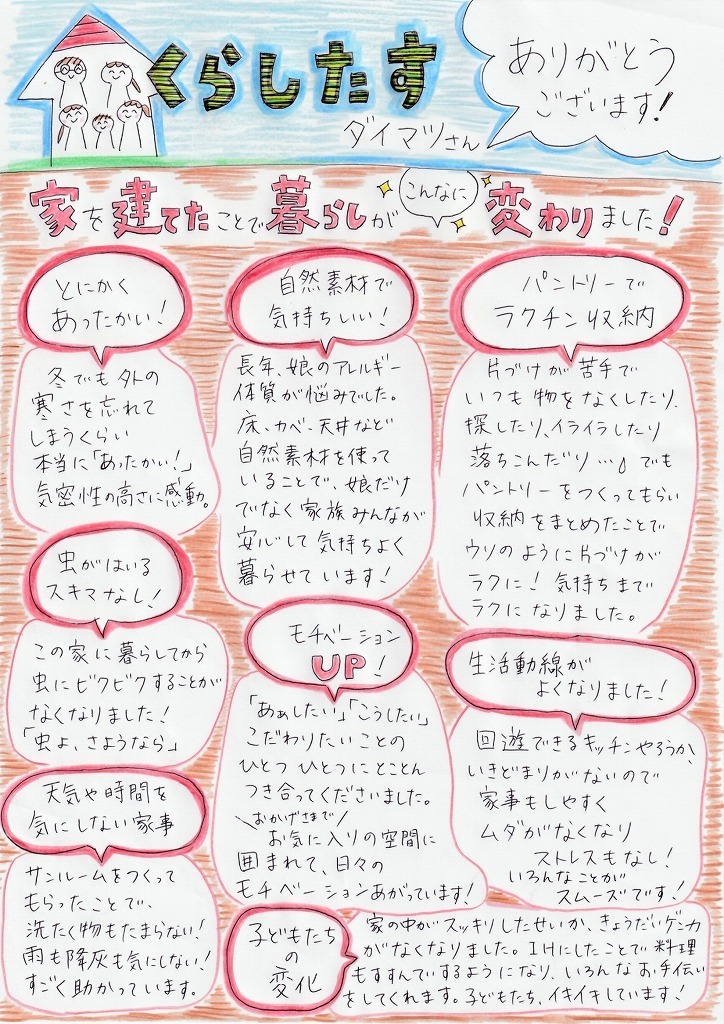 くらしたす
ダイマツさん
ありがとう
ございます!
家を建てたことで暮らしが
こんなに
変わりました!
とにかく
あったかい!
冬でも外の
寒さを忘れて
しまうくらい
本当に「あったかい!」
気密性の高さに感動。
虫がはいる
スキマなし!
この家に暮らしてから
虫にビクビクすることが
なくなりました!
「虫よ、さようなら」
天気や時間を
気にしない家事
サンルームをつくって
もらったことで、
洗たく物もたまらない!
雨も降灰も気にしない!
すごく助かっています。
自然素材で
気持ちいい!
長年、娘のアレルギー
体質が悩みでした。
床、カベ、天井など
自然素材を使って
いることで、娘だけ
でなく家族みんなが
安心して気持ちよく
暮らせています!
モチベーション
UP!
「あぁしたい」「こうしたい」
こだわりたいことの
ひとつひとつにとことん
つき合ってくださいました。
\おかげさまで/
お気に入りの空間に
囲まれて、日々の
モチベーションあがっています!
パントリーで
ラクチン収納
片づけが苦手で
いつも物をなくしたり、
探したり、イライラしたり
落ちこんだり…。でも
パントリーをつくってもらい
収納をまとめたことで
ウソのように片づけが
ラクに!気持ちまで
ラクになりました。
生活動線が
よくなりました!
回遊できるキッチンやろうか、
いきどまりがないので
家事もしやすく
ムダがなくなり
ストレスもなし!
いろんなことが
スムーズです!
子どもたち
の
変化
家の中がスッキリしたせいか、きょうだいゲンカ
がなくなりました。IHにしたことで料理
もすすんでするようになり、いろんなお手伝い
をしてくれます。子どもたち、イキイキしています!